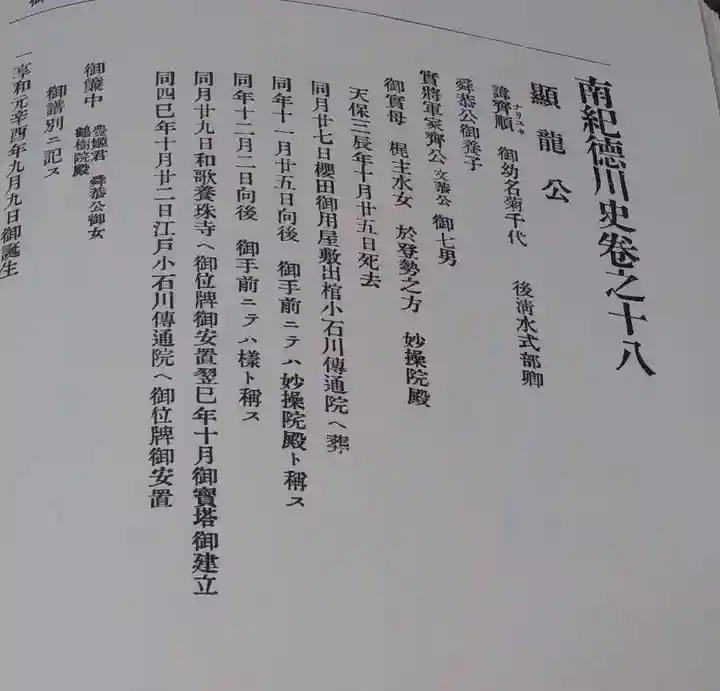 南紀德川史卷之十八
顯龍公
諱齊順 御幼名菊千代 後淸水式部卿
ナリユキ
舜恭公御養子
實將軍家齊公文恭公御七男
御實母 梶主水女 於登勢之方 妙操院殿
天保三辰年十月廿五日死去
同月廿七日櫻田御用屋敷出棺小石川傳通院ヘ葬
同年十一月廿五日向後 御手前ニテハ妙操院殿ト稱ス
同年十二月二日向後 御手前ニテハ樣ト稱ス
同月廿九日和歌養珠寺ヘ御位牌御安置翌巳年十月御寶塔御建立
同四巳年十月廿二日江戸小石川傳通院ヘ御位牌御安置
御簾中 豊姬君 舜恭公御女
鶴樹院殿
御譜別ニ記ス
一享和元辛酉年九月九日御誕生